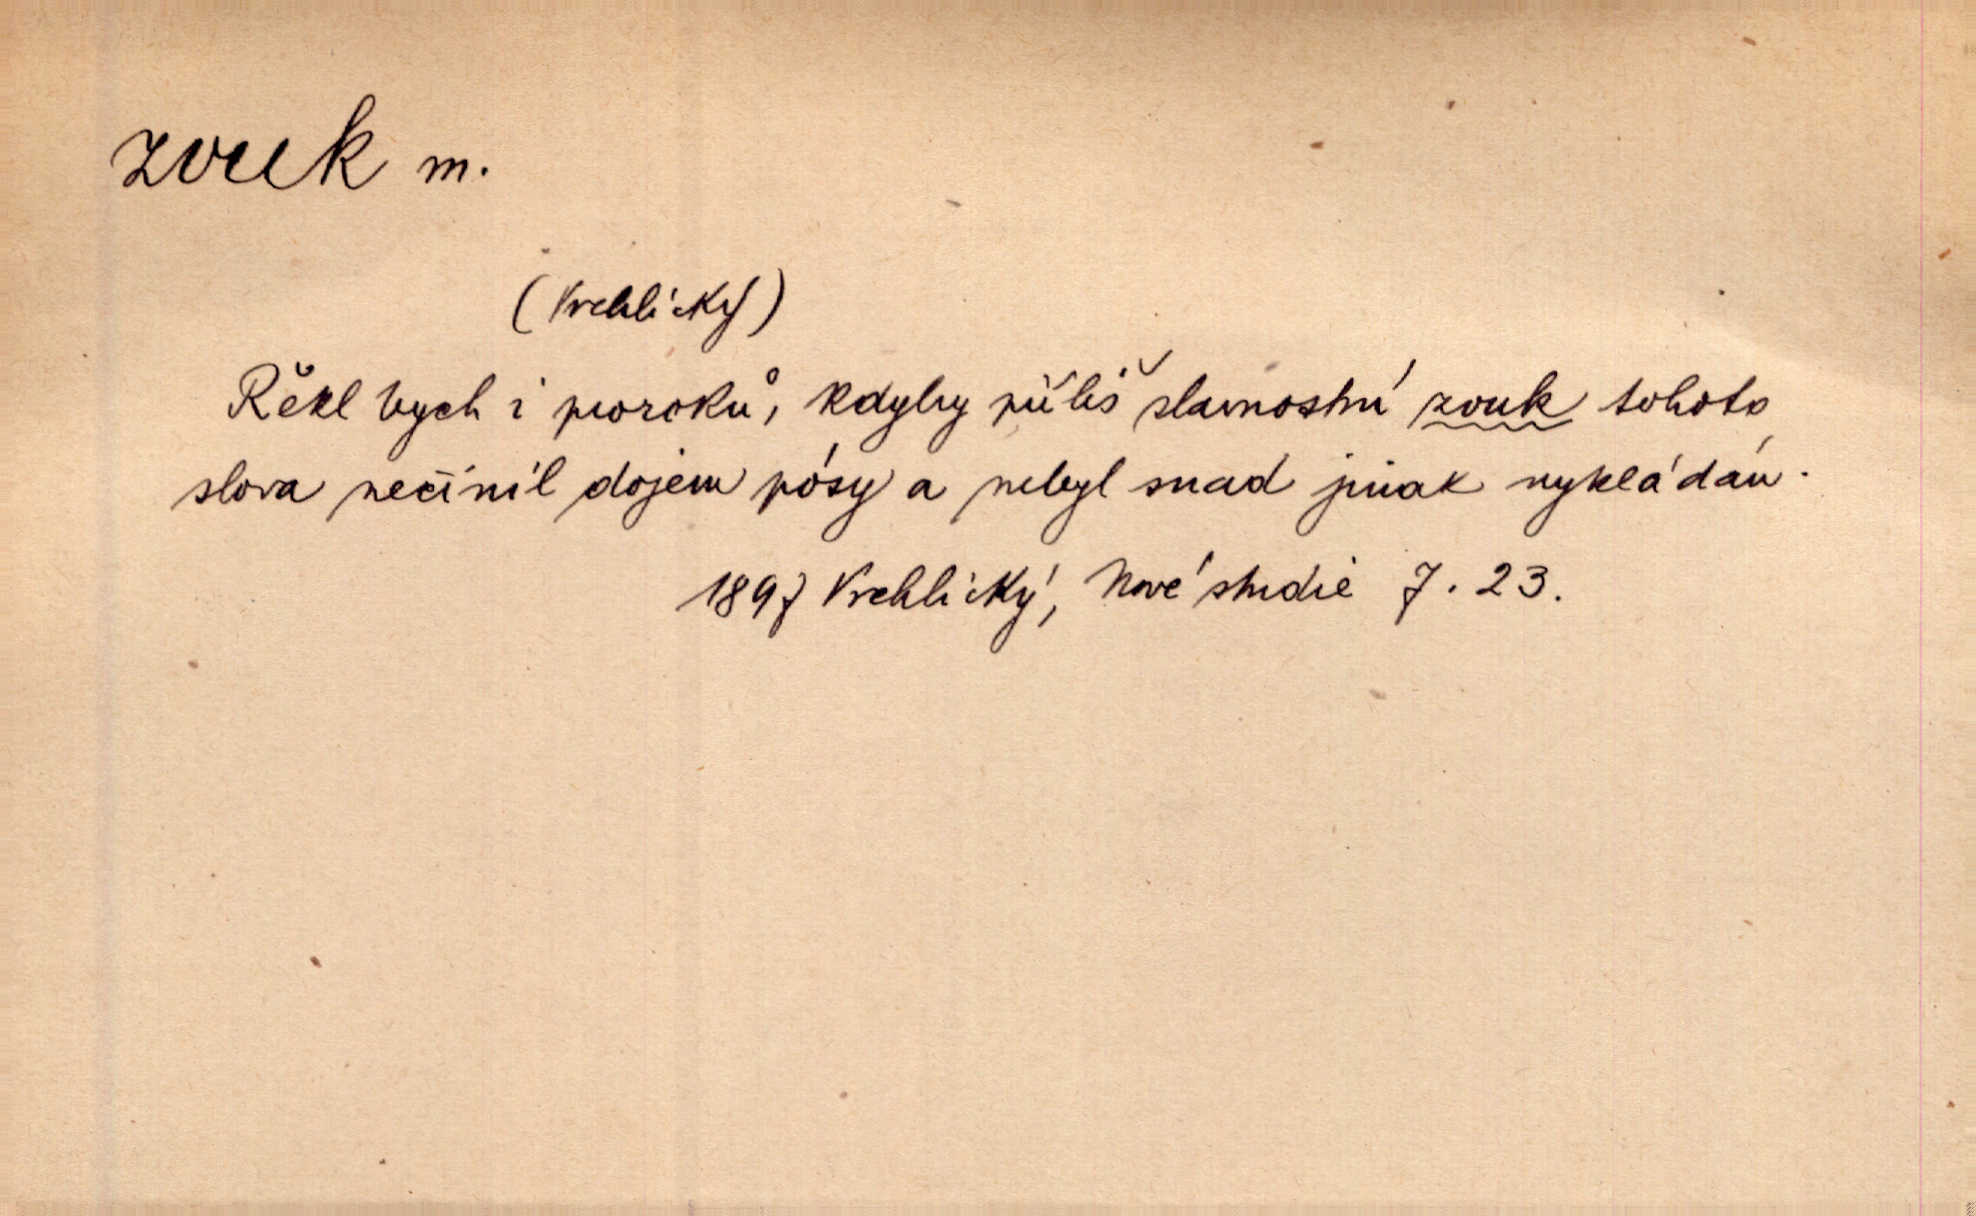 zvuk m.
(Vrchlický)
Řekl bych i proroků, kdyby příliš slavnostní zvuk tohoto
slova nečinil dojem pósy a nebyl snad jinak vykládán.
1897 Vrchlický, Nové studie 7. 23.